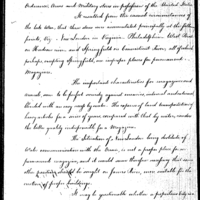 Ordnance, Arms and Military Stores as proportion of the United States
It resulted from the casual circumstances of
the late War, that these stores were accumulated principally at the following
points, Viz - New London in Virginia, Philadelphia, West Point
on Hudson river and Springfield on Connecticut River; all of which
perhaps excepting Springfield, are improper places for permanent
Magazines.
The important characteristics for magazines and
arsenals, seem to be perfect security against enemies, internal and external
blended with an easy access by water. The expense of land transportation of
heavy articles for a series of years compared with that by water, renders
the latter quality indispensable for a Magazine.
The situation of New London being destitute of
Water communication with the Ocean, is not a proper place for
permanent magazines, and it would seem therefore necessary that some
other position should be sought on James River, more suitable for the
erection of proper buildings.
It may be questionable whether a populous City is a